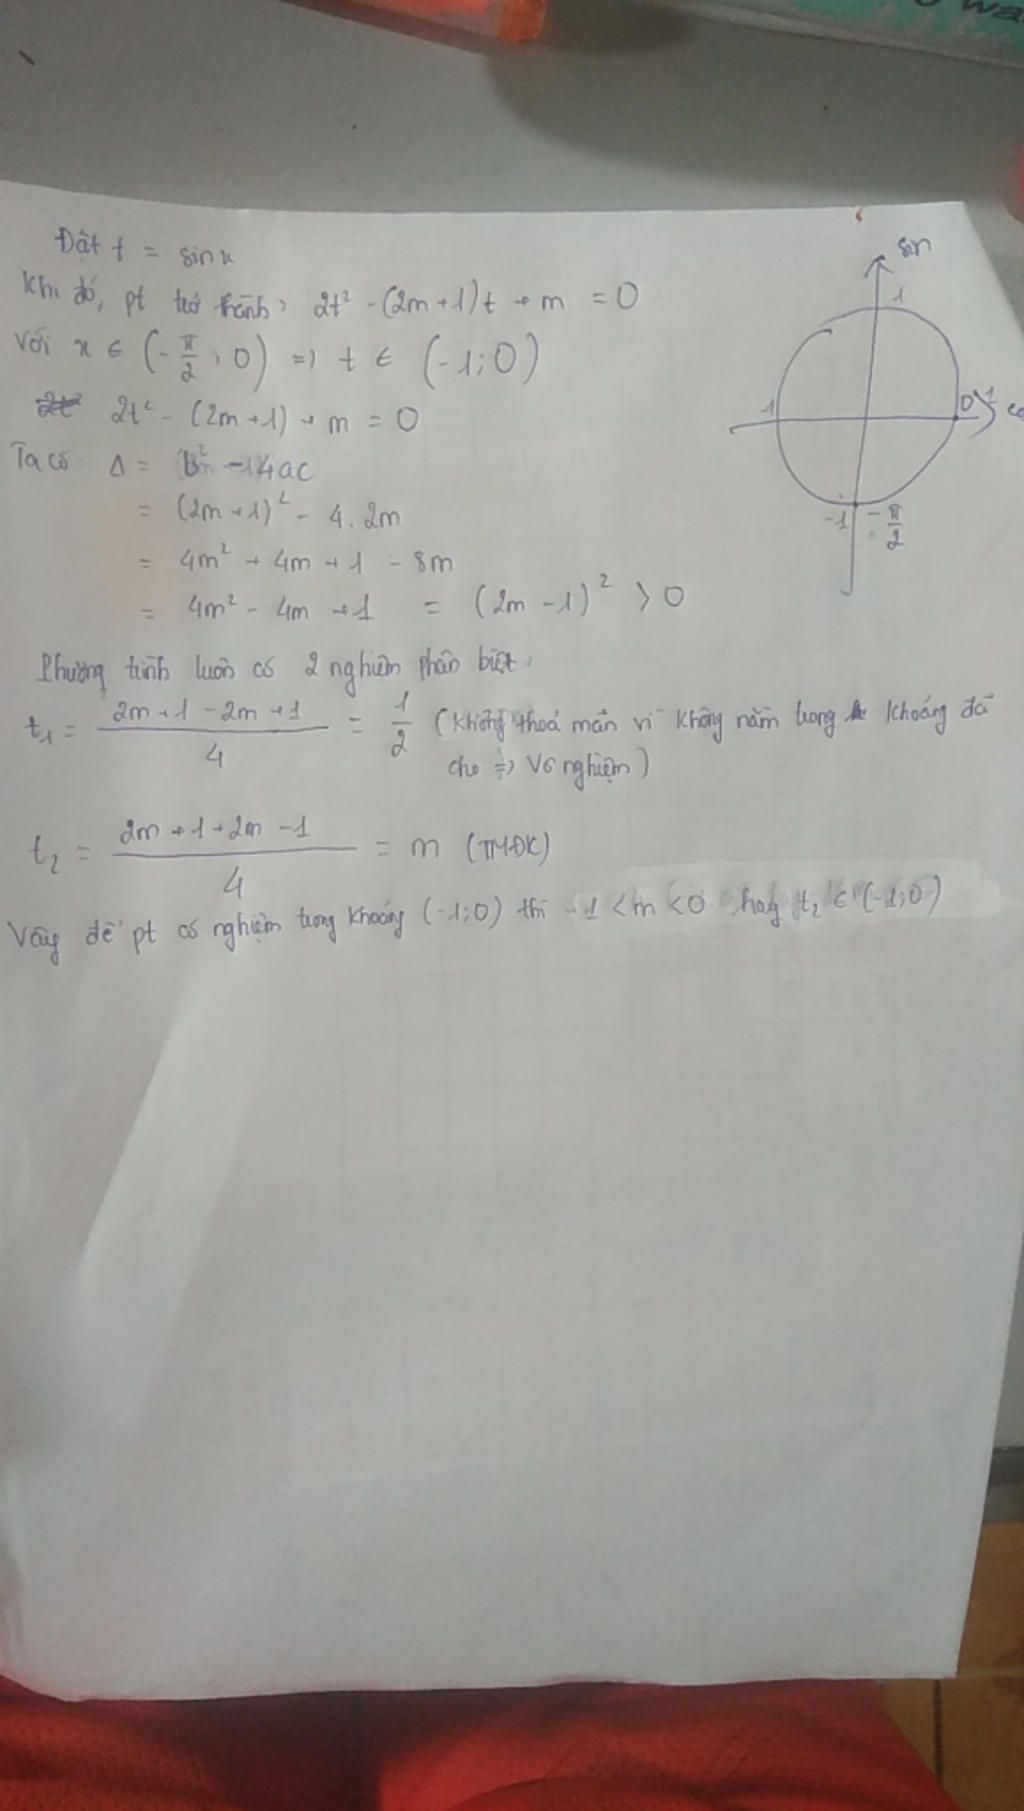 Đặt t = sin x
Khi đó, pt trở thành: 2t² - (2m+1)t + m = 0
Với x ∈ (-π/2 ; 0) => t ∈ (-1;0)
2t² - (2m+1) + m = 0
Ta có Δ = b² - 4ac
= (2m+1)² - 4.2m
= 4m² + 4m + 1 - 8m
= 4m² - 4m + 1 = (2m - 1)² > 0
Phương trình luôn có 2 nghiệm phân biệt:
t₁ = (2m+1-2m+1)/4 = 1/2 (Không thoả mãn vì không nằm trong khoảng đã
cho => Vô nghiệm)
t₂ = (2m+1+2m-1)/4 = m (TMĐK)
Vậy để pt có nghiệm trong khoảng (-1;0) thì -1 < m < 0 hay t₂ ∈ (-1;0)
sin
1
1
0
1
-1
-π/2
wa